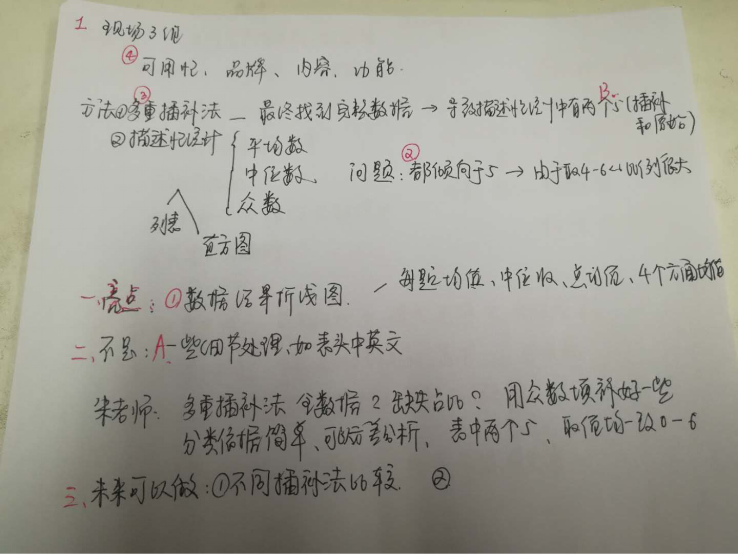 1 现场3组
④ 可用性、品牌、内容、功能.
方法①多重插补法 — 最终找到完整数据 → 导致描述性统计中有两个5(插补和原始)
③ B
②描述性统计 { 平均数 中位数、 众数
问题:都倾向于5 → 由于取4-6<比例很大
②
列表 直方图
一、亮点:①数据结果折线图. — 每题均值、中位数、总均值、4个方面均值
二、不足:A一些细节处理、如表头中英文
朱老师: 多重插补法 全数据?缺失占比?用众数填补好一些
分类依据简单、可以方差分析、表中两个5、取值均一致0-6
三、未来可以做:①不同插补法比较 ②